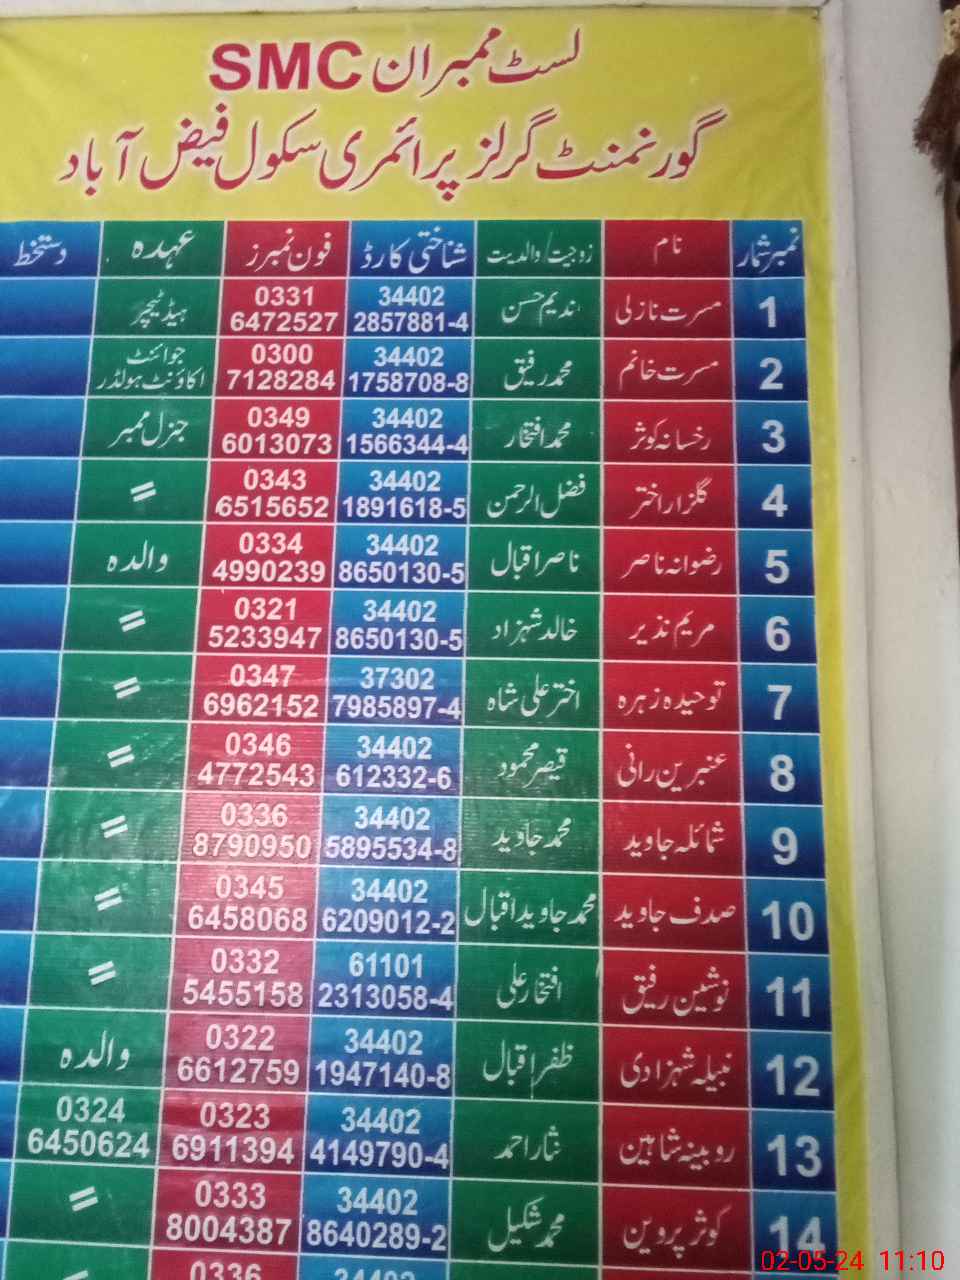 لسٹ ممبران SMC
گورنمنٹ گرلز پرائمری سکول فیض آباد
نمبر شمار نام زوجیت/والدیت شناختی کارڈ فون نمبرز عہدہ دستخط
1 مسرت نازلی ندیم حسن 34402 2857881-4 0331 6472527 ہیڈ ٹیچر
2 مسرت خانم محمد رفیق 34402 1758708-8 0300 7128284 جوائنٹ اکاؤنٹ ہولڈر
3 رخسانہ کوثر محمد افتخار 34402 1566344-4 0349 6013073 جنرل ممبر
4 گلزار اختر فضل الرحمن 34402 1891618-5 0343 6515652 =
5 رضوانہ ناصر ناصر اقبال 34402 8650130-5 0334 4990239 والدہ
6 مریم نذیر خالد شہزاد 34402 8650130-5 0321 5233947 =
7 توحیدہ زہرہ اختر علی شاہ 37302 7985897-4 0347 6962152 =
8 عنبرین رانی قیصر محمود 34402 612332-6 0346 4772543 =
9 شمائلہ جاوید محمد جاوید 34402 5895534-8 0336 8790950 =
10 صدف جاوید محمد جاوید اقبال 34402 6209012-2 0345 6458068 =
11 نوشین رفیق افتخار علی 61101 2313058-4 0332 5455158 =
12 نبیلہ شہزادی ظفر اقبال 34402 1947140-8 0322 6612759 والدہ
13 روبینہ شاہین نثار احمد 34402 4149790-4 0323 6911394 0324 6450624
14 کوثر پروین محمد شکیل 34402 8640289-2 0333 8004387 =
34402 0336 =
02-05-24 11:10